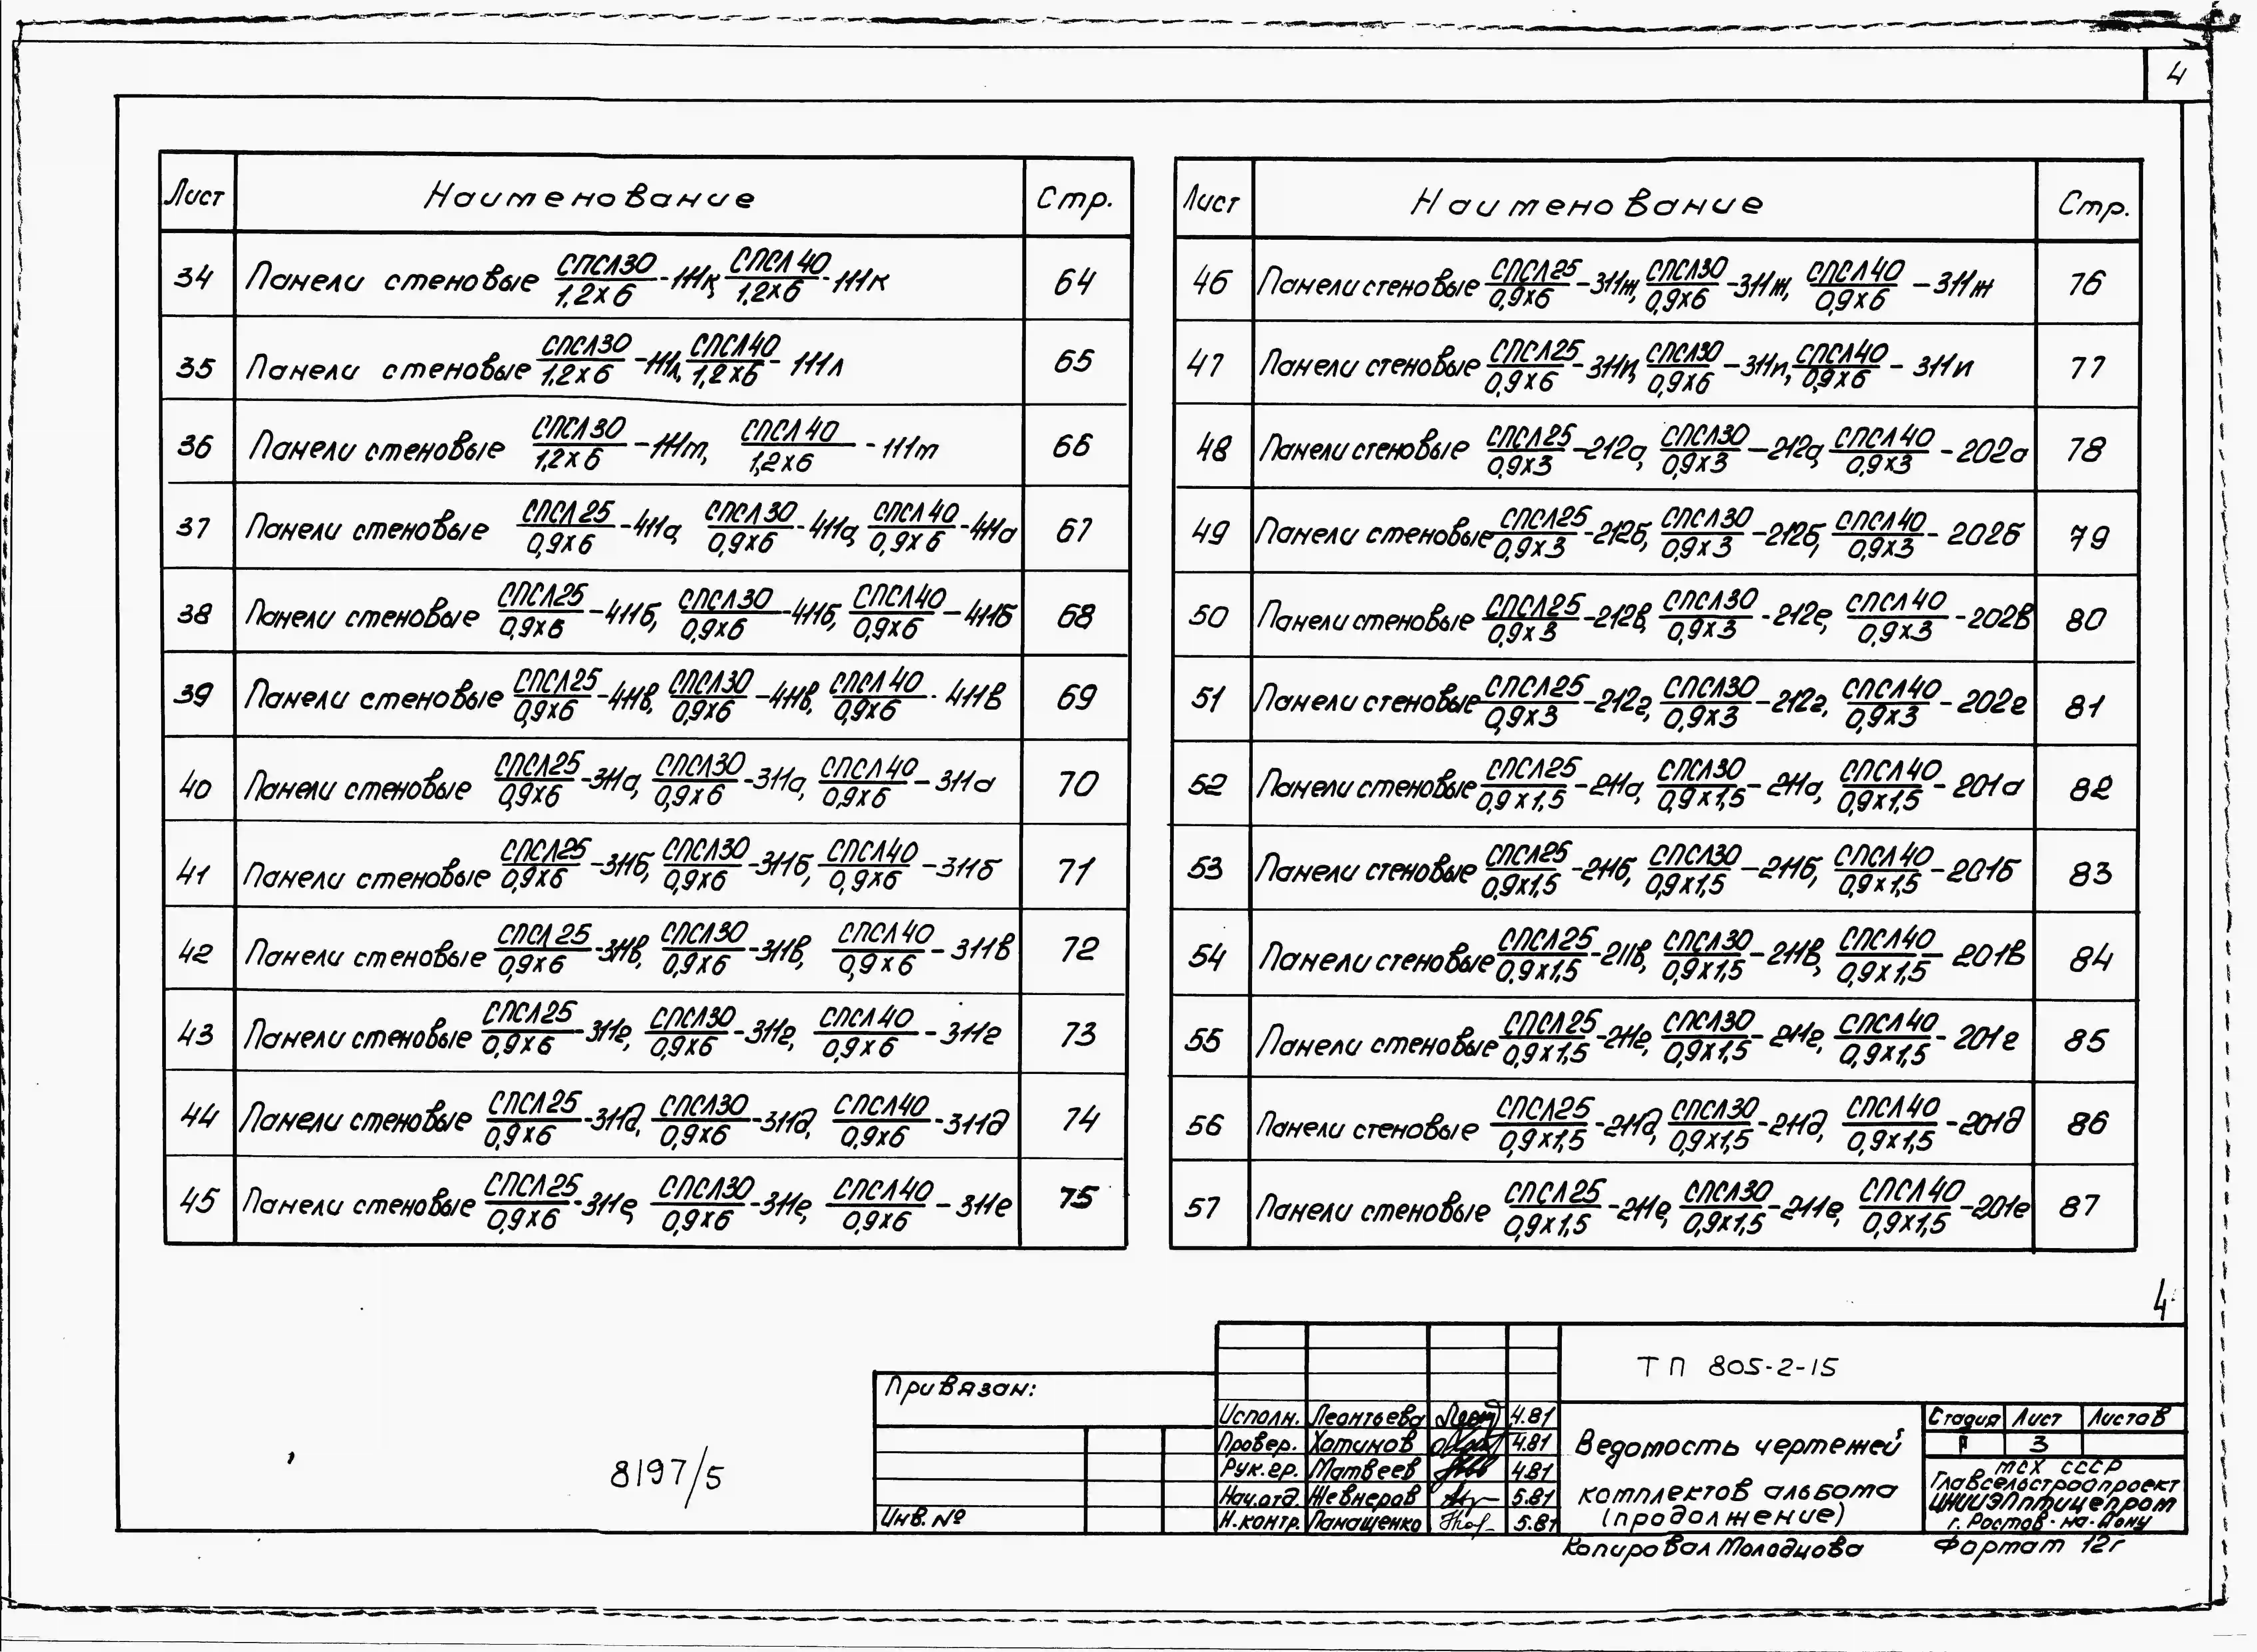 4
Лист Наименование Стр.
34 Панели стеновые СПСЛ30/1.2х6-111к, СПСЛ40/1.2х6-111к 64
35 Панели стеновые СПСЛ30/1.2х6-111л, СПСЛ40/1.2х6-111л 65
36 Панели стеновые СПСЛ30/1.2х6-111т, СПСЛ40/1.2х6-111т 66
37 Панели стеновые СПСЛ25/0,9х6-411а, СПСЛ30/0,9х6-411а, СПСЛ40/0,9х6-411а 67
38 Панели стеновые СПСЛ25/0,9х6-411б, СПСЛ30/0,9х6-411б, СПСЛ40/0,9х6-411б 68
39 Панели стеновые СПСЛ25/0,9х6-411в, СПСЛ30/0,9х6-411в, СПСЛ40/0,9х6-411в 69
40 Панели стеновые СПСЛ25/0,9х6-311а, СПСЛ30/0,9х6-311а, СПСЛ40/0,9х6-311а 70
41 Панели стеновые СПСЛ25/0,9х6-311б, СПСЛ30/0,9х6-311б, СПСЛ40/0,9х6-311б 71
42 Панели стеновые СПСЛ25/0,9х6-311в, СПСЛ30/0,9х6-311в, СПСЛ40/0,9х6-311в 72
43 Панели стеновые СПСЛ25/0,9х6-311г, СПСЛ30/0,9х6-311г, СПСЛ40/0,9х6-311г 73
44 Панели стеновые СПСЛ25/0,9х6-311д, СПСЛ30/0,9х6-311д, СПСЛ40/0,9х6-311д 74
45 Панели стеновые СПСЛ25/0,9х6-311е, СПСЛ30/0,9х6-311е, СПСЛ40/0,9х6-311е 75
Лист Наименование Стр.
46 Панели стеновые СПСЛ25/0,9х6-311ж, СПСЛ30/0,9х6-311ж, СПСЛ40/0,9х6-311ж 76
47 Панели стеновые СПСЛ25/0,9х6-311и, СПСЛ30/0,9х6-311и, СПСЛ40/0,9х6-311и 77
48 Панели стеновые СПСЛ25/0,9х3-212а, СПСЛ30/0,9х3-212а, СПСЛ40/0,9х3-202а 78
49 Панели стеновые СПСЛ25/0,9х3-212б, СПСЛ30/0,9х3-212б, СПСЛ40/0,9х3-202б 79
50 Панели стеновые СПСЛ25/0,9х3-212в, СПСЛ30/0,9х3-212в, СПСЛ40/0,9х3-202в 80
51 Панели стеновые СПСЛ25/0,9х3-212г, СПСЛ30/0,9х3-212г, СПСЛ40/0,9х3-202г 81
52 Панели стеновые СПСЛ25/0,9х1,5-211а, СПСЛ30/0,9х1,5-211а, СПСЛ40/0,9х1,5-201а 82
53 Панели стеновые СПСЛ25/0,9х1,5-211б, СПСЛ30/0,9х1,5-211б, СПСЛ40/0,9х1,5-201б 83
54 Панели стеновые СПСЛ25/0,9х1,5-211в, СПСЛ30/0,9х1,5-211в, СПСЛ40/0,9х1,5-201в 84
55 Панели стеновые СПСЛ25/0,9х1,5-211г, СПСЛ30/0,9х1,5-211г, СПСЛ40/0,9х1,5-201г 85
56 Панели стеновые СПСЛ25/0,9х1,5-211д, СПСЛ30/0,9х1,5-211д, СПСЛ40/0,9х1,5-201д 86
57 Панели стеновые СПСЛ25/0,9х1,5-211е, СПСЛ30/0,9х1,5-211е, СПСЛ40/0,9х1,5-201е 87
4
8197/5
Привязан:
Инв. №
Исполн. Леонтьева 4.81
Провер. Хатинов 4.81
Рук.гр. Матвеев 4.81
Нач.отд. Жевнеров 5.81
Н.контр. Панащенко 5.81
ТП 805-2-15
Ведомость чертежей
комплектов альбома
(продолжение)
Стадия Лист Листов
Р 3
МСХ СССР
Главсельстройпроект
ЦНИИЭПптицепром
г. Ростов-на-Дону
Копировал Молодцова
Формат 12г